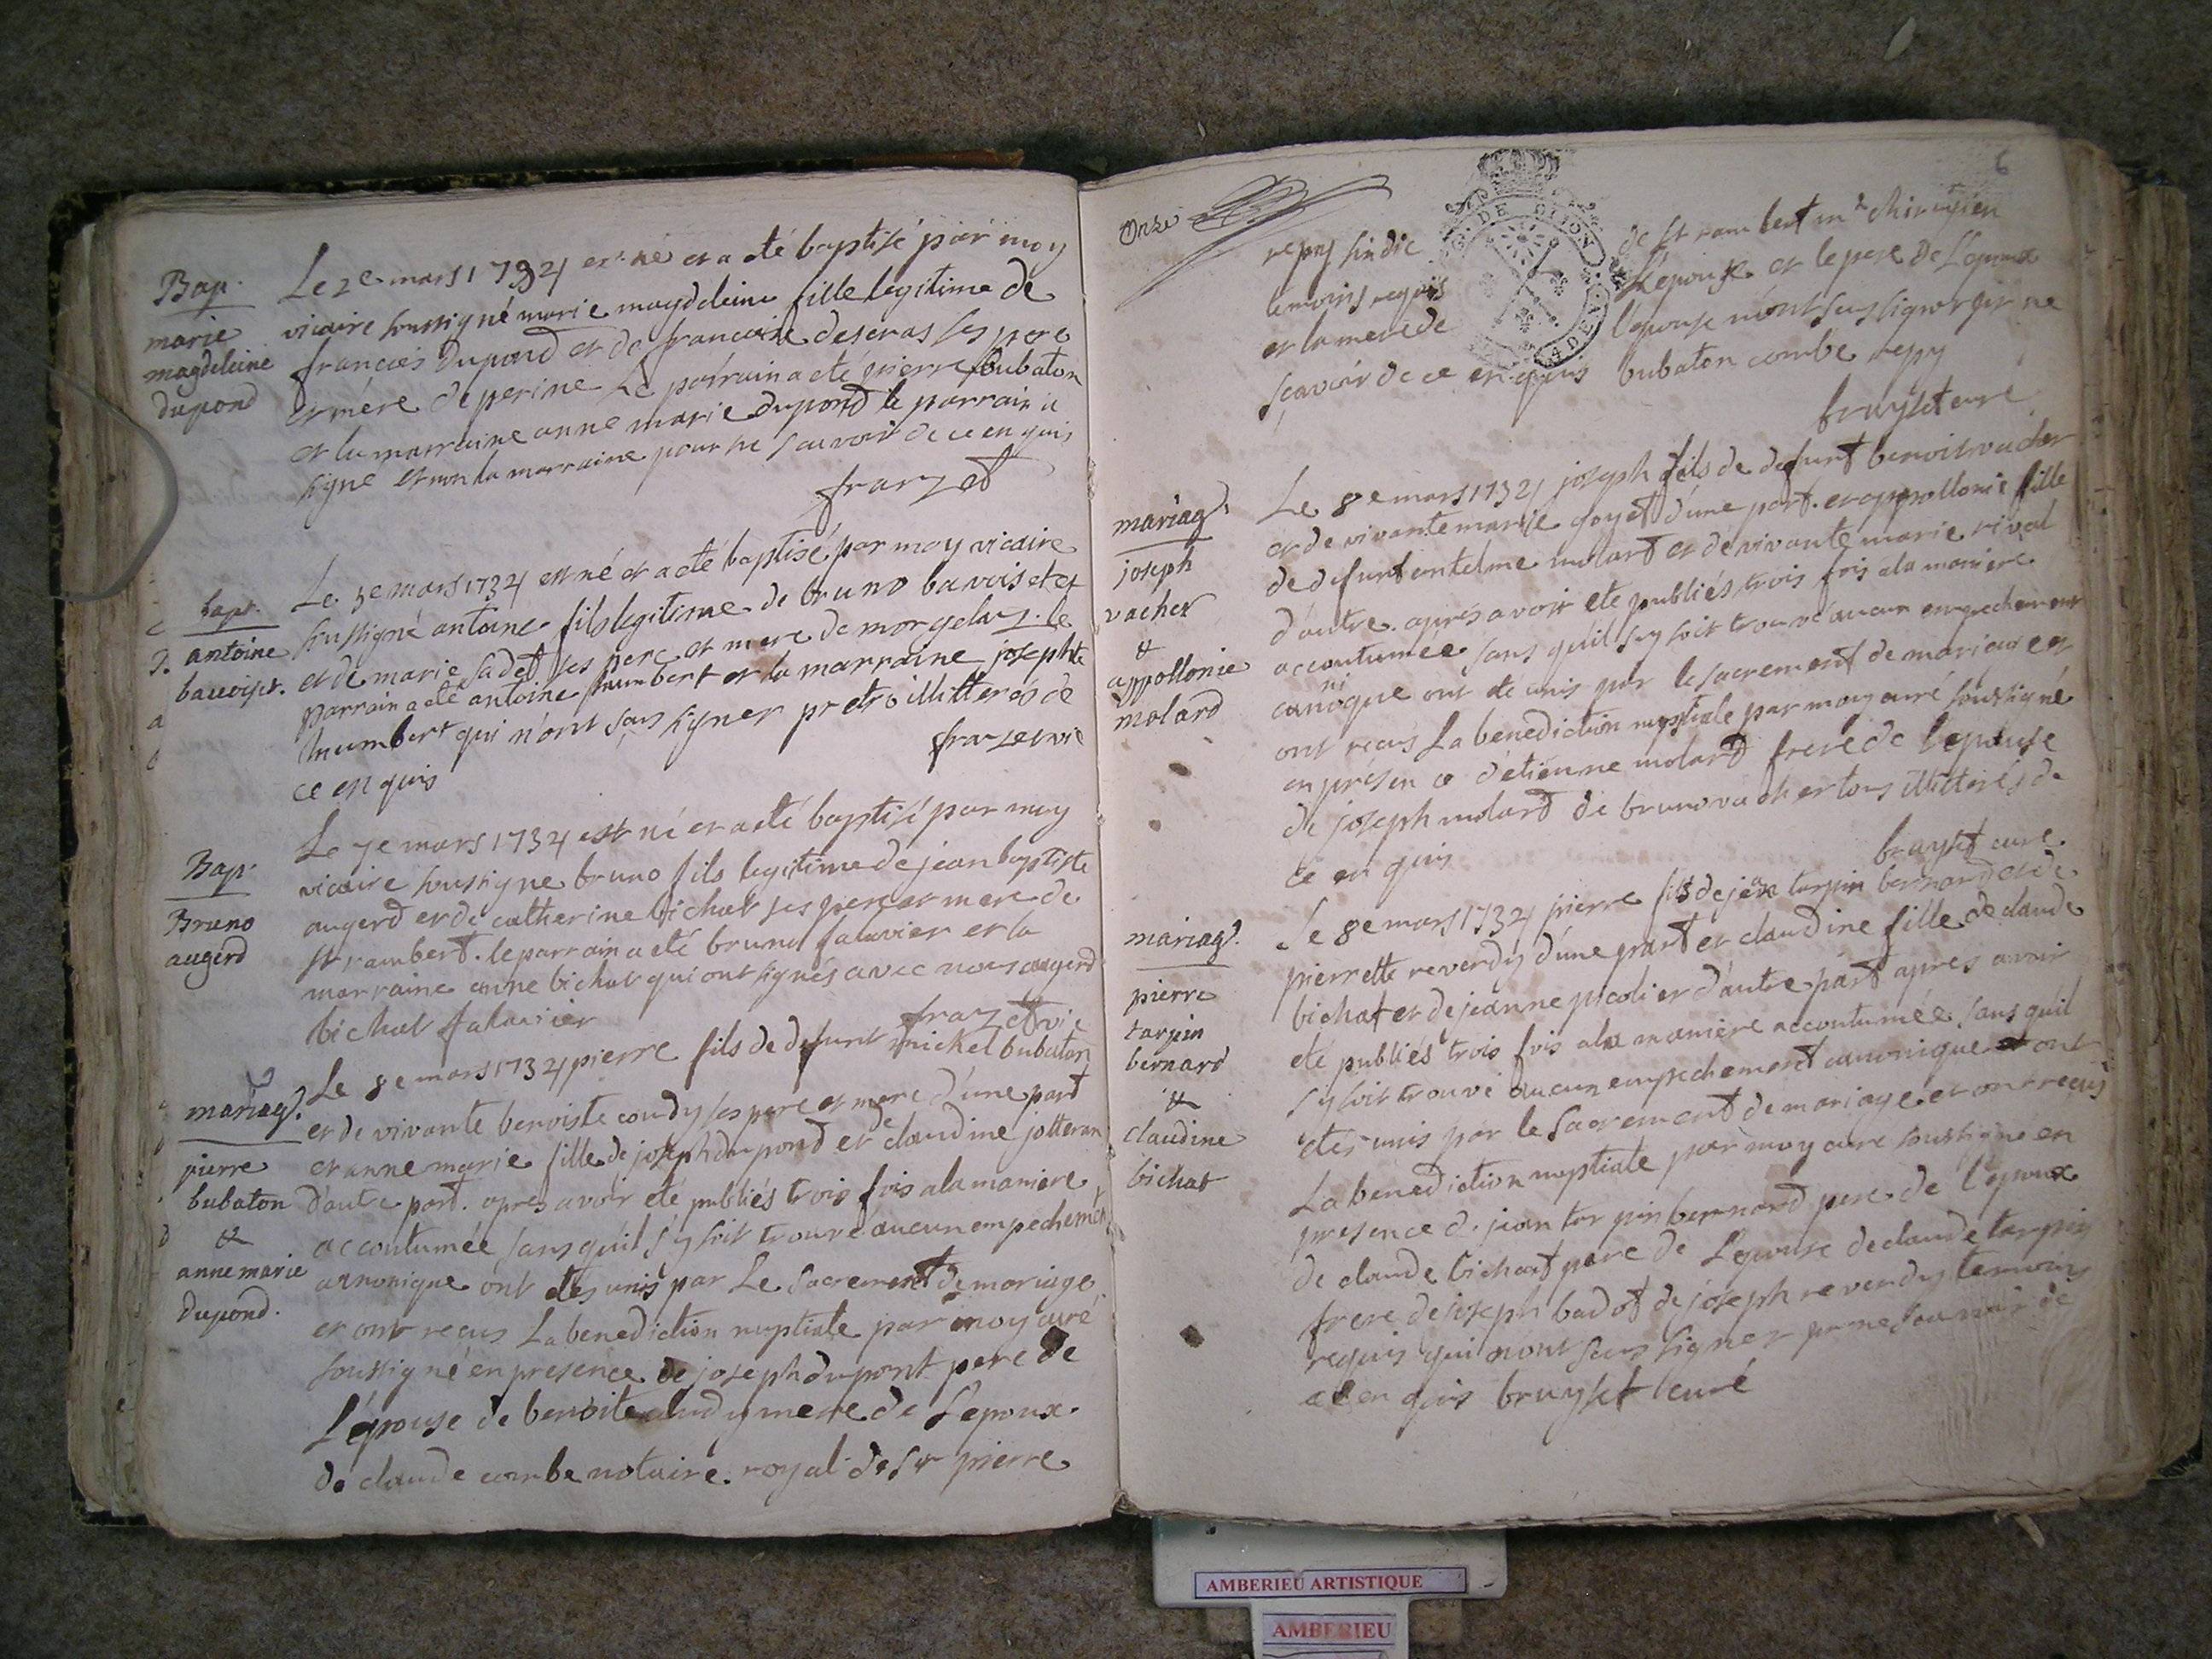 Bap.
marie
magdeleine
dupond
Le 2e mars 1734 est né et a eté baptisé par moy
vicaire soussigné marie magdeleine fille legitime de
francois dupond et de francoise deseras ses pere
et mère de perine le parrain a eté pierre bubaton
et la marraine anne marie dupond le parrain a
signé et non la marraine pour ne scavoir de ce en quis
frarzet
bapt.
antoine
bavoiset.
Le 5e mars 1734 est né et a eté baptisé par moy vicaire
soussigné antoine fils legitime de bruno bavoiset et
et de marie sadet ses pere et mere de morgelaz. le
parrain a eté antoine humbert et la marraine josephte
humbert qui n'ont sceus signer pr etre illitterés de
ce en quis
frarzet vic
Bap.
Bruno
augerd
Le 7e mars 1734 est né et a eté baptisé par moy
vicaire soussigne bruno fils legitime de jean baptiste
augerd et de catherine bichat ses pere et mere de
st rambert. le parrain a eté bruno falavier et la
marraine anne bichat qui ont signés avec nous augerd
bichat falavier
frarzet vic
mariag.
pierre
bubaton
&
anne marie
dupond.
Le 8e mars 1734 pierre fils de defunt michel bubaton
et de vivante benoiste coudy ses pere et mere d'une part
et anne marie fille de joseph dupond et de claudine jotteran
d'autre part. apres avoir eté publiés trois fois a la maniere
accoutumée sans qu'il s'y soit trouvé aucun empechemt
cannonique ont etes unis par Le Sacrement de mariage
et ont recus La benediction nuptiale par moy curé
soussigné en presence de joseph dupont pere de
L'épouse de benoite coudy mere de L'epoux.
de claude combe notaire royal de Sr pierre
Onze
6
repey sindic de st rambert mre chirugien
temoins requis L'epouse et le pere de L'epoux
et la mere de l'epouse n'ont sceus signer pr ne
scavoir de ce en quis bubaton combe repey
bruyset curé
mariag.
joseph
vacher
&
appollonie
molard
Le 8e mars 1734 joseph fils de defunt benoit vacher
et de vivante marie goyet d'une part. et appollonie fille
de defunt antelme molard et de vivante marie rival
d'autre. aprés avoir eté publiés trois fois a la maniere
accoutumée sans qu'il s'y soit trouvé aucun empechement
ni
canoque ont eté unis par le sacrement de mariage et
ont recus La benediction nuptiale par moy curé soussigné
en présence d'etienne molard frere de l'epouse
de joseph molard de bruno vacher tous illitterés de
ce en quis
bruyset curé.
mariag.
pierre
tarpin
bernard
&
claudine
bichat
Le 8e mars 1734 pierre fils de jean tarpin bernard et de
pierrette reverdy d'une part et claudine fille de claude
bichat et de jeanne picoli er d'autre part apres avoir
eté publiés trois fois a la manière accoutumée. sans qu'il
s'y soit trouvé aucun empechement canonique ont
etés unis par le sacrement de mariage et ont recus
La bénédiction nuptiale par moy curé soussigné en
presence d. jean tarpin bernard pere de l'epoux
de claude bichat pere de L'epouse de claude tarpin
frere de joseph badot de joseph reverdy temoins
requis qui n'ont sceus signer pr ne scavoir de
ce en quis bruyset curé
AMBERIEU ARTISTIQUE
AMBERIEU